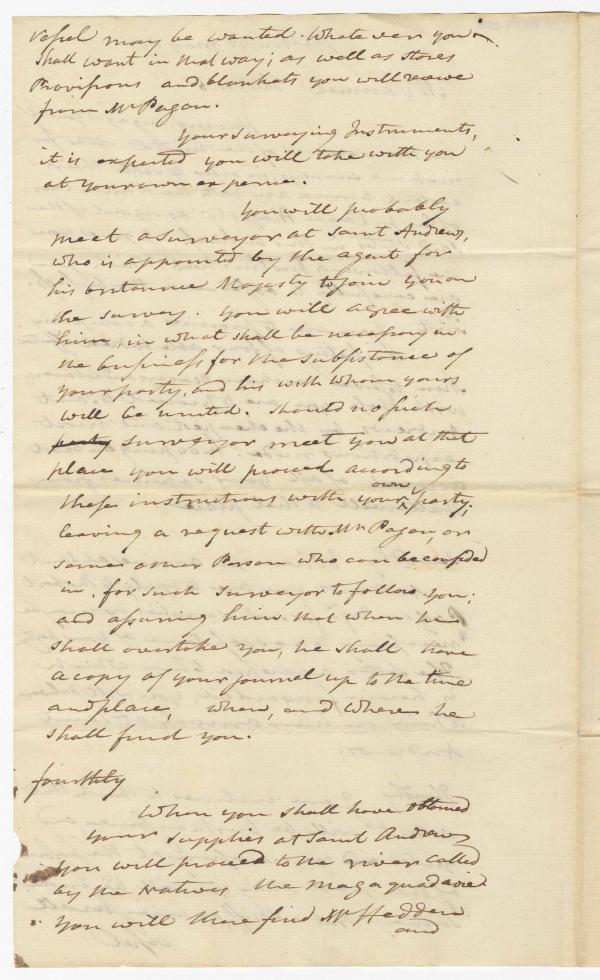 vessel may be wanted. Whatever you
shall want in that way; as well as stores
Provisions and blankets you will receive
from Mr Pagan.
Your surveying Instruments,
it is expected you will take with you
at your own expence.
You will probably
meet a surveyor at Saint Andrews,
who is appointed by the agent for
his britannic Majesty to join you on
the survey. You will agree with
him, in what shall be necessary in
the business for the subsistance of
your party, and his with whom yours
will be united. Should no such
party surveyor meet you at that
place you will proceed according to
own
these instructions with your ^ party;
leaving a request with Mr Pagan, or
some other Person who can be confided
in, for such surveyor to follow you;
and assuring him that when he
shall overtake you, he shall have
a copy of your journal up to the time
and place, when, and where he
shall find you.
fourthly
When you shall have obtained
your supplies at Saint Andrews
you will proceed to the river called
by the Natives the Magaquadavic
you will there find Mr Hedden
and